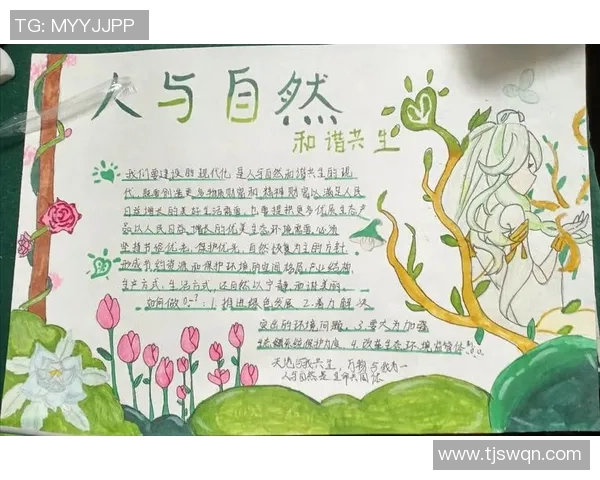 TG: MYYJJPP
人与自然
和谐共生
我们要建设的现代化是人与自然和谐共生的现
代,既要创造更多物质财富和精神财富以满足人民
日益增长的美好生活需要,也要提供更多优质生态产
品以人民日益增长的优美生态环境需要,必须
坚持节约优先、保护优先、自然恢复为主的方针,
形成节约资源和保护环境的空间格局,产业结构,
生产方式,生活方式,还自然以宁静,和谐,美丽。
如何做 : 1. 推进绿色发展 2. 着力解决
突出的环境问题, 3. 要大力加强
生态系统保护力度 4. 改革生态环境监管体
天地与我共生, 万物与我为一
人与自然是生命共同体
www.tjswqn.com